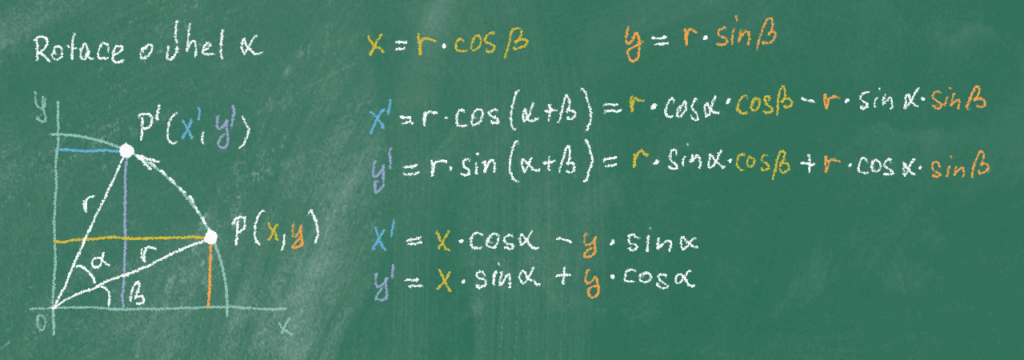 Rotace o úhel α
x = r · cos β
y = r · sin β
x' = r · cos (α+β) = r · cosα · cosβ − r · sin α · sinβ
y' = r · sin (α+β) = r · sinα · cosβ + r · cos α · sinβ
x' = x · cosα − y · sinα
y' = x · sinα + y · cosα
y
P' (x', y')
r
P(x,y)
α
r
β
0
x